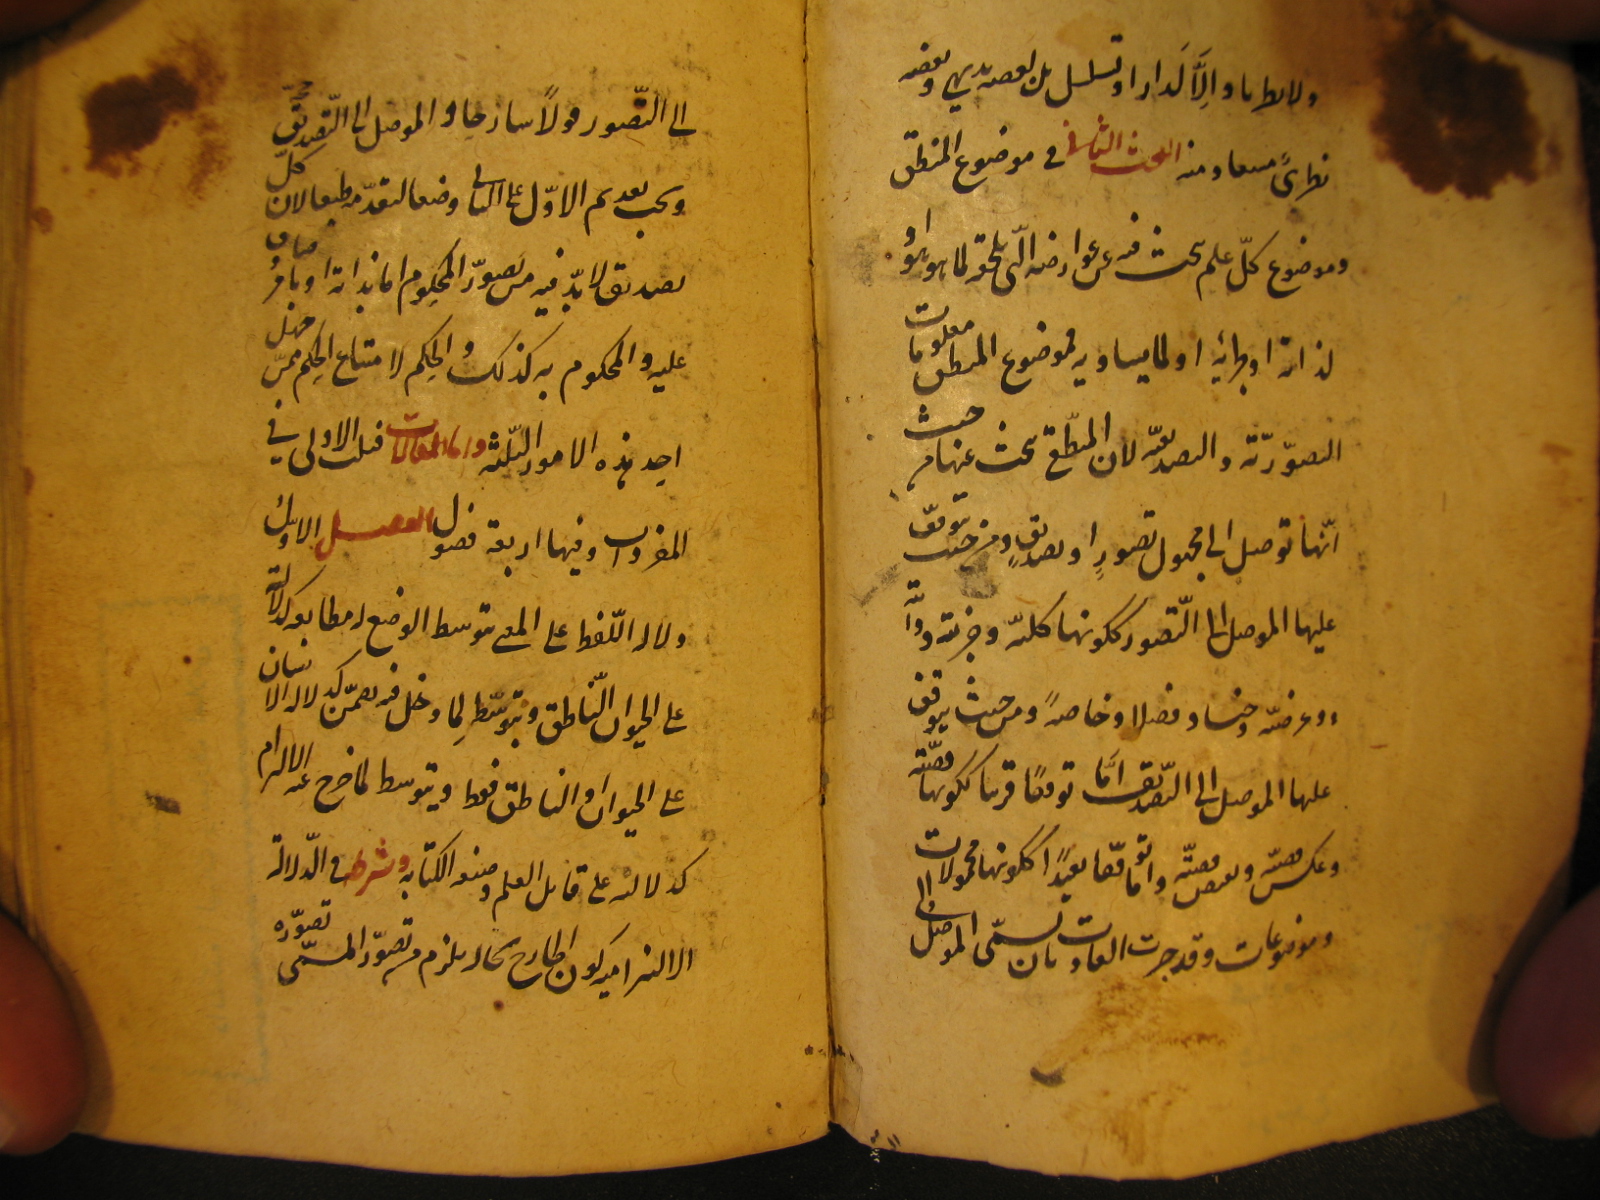 ولا نظريا والا لدار او تسلسل بل بعضه بديهي وبعضه
نظرى مستفاد منه البحث الثانى فى موضوع المنطق
وموضوع كل علم يبحث فيه عن عوارضه التى تلحقه لما هو هو او
لذاته او لجزئه او لما يساويه فموضوع المنطق معلومات
التصورية والتصديقية لان المنطقى يبحث عنها من حيث
انها توصل الى مجهول تصورى او تصديقى ومن حيث يتوقف
عليها الموصل الى التصور ككونها كلية وجزئية وذاتية
وعرضية وجنسا وفصلا وخاصة ومن حيث يتوقف
عليها الموصل الى التصديق اما توقفا قريبا ككونها قضية
وعكس قضية ونقيض قضية واما توقفا بعيدا ككونها محمولات
وموضوعات وقد جرت العادة بان يسمى الموصل الى
الى التصور قولا شارحا والموصل الى التصديق حجة
ويجب تقديم الاول على الثانى وضعا لتقدمه طبعا لان كل
تصديق لا بد فيه من تصور المحكوم اما بذاته او بامر صادق
عليه والمحكوم به كذلك والحكم لا متناع الحكم ممن جهل
احد هذه الامور الثلثة واما المقالات فثلث الاولى فى
المفردات وفيها اربعة فصول الفصل الاول
دلالة اللفظ على المعنى بتوسط الوضع له مطابقة كدلالة الانسان
على الحيوان الناطق وبتوسطه لما دخل فيه تضمن كدلالة الانسان
على الحيوان او الناطق فقط وبتوسط لما خرج عنه الالتزام
كدلالته على قابل العلم وصنعة الكتابة وشرط فى الدلالة
الالتزامية كون الخارج بحالة يلزم من تصور المسمى تصوره